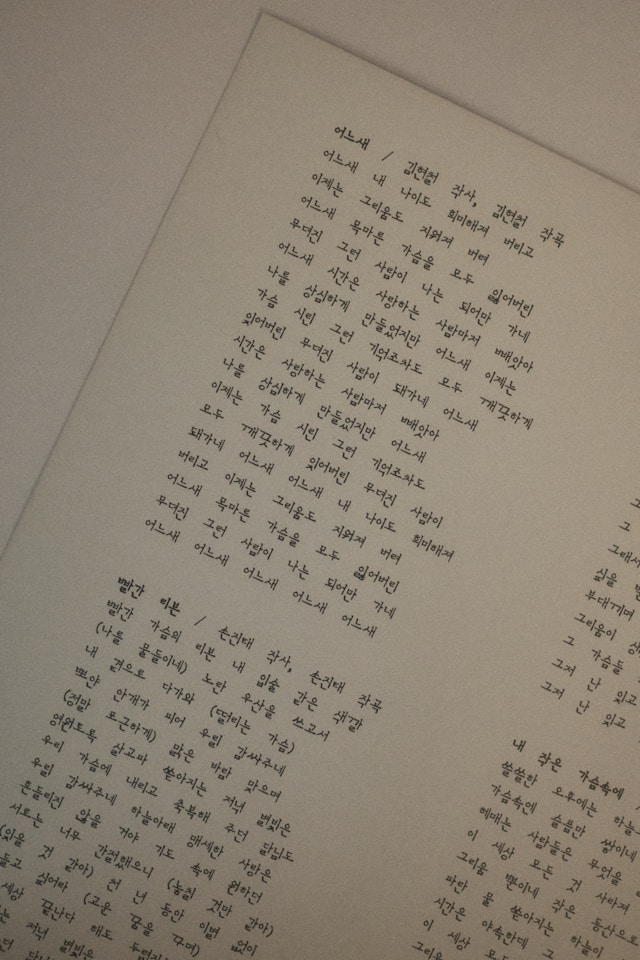 어느새 / 김현철 작사, 김현철 작곡
어느새 내 나이도 희미해져 버리고
이제는 그리움도 지워져 버려
어느새 목마른 가슴을 모두 잃어버린
무뎌진 그런 사람이 나는 되어만 가네
어느새 시간은 사랑하는 사람마저 빼앗아
나를 상심하게 만들었지만 어느새 이제는
가슴 시린 그런 기억조차도 모두 깨끗하게
잊어버린 무뎌진 사람이 돼가네 어느새
시간은 사랑하는 사람마저 빼앗아
나를 상심하게 만들었지만 어느새
이제는 가슴 시린 그런 기억조차도
모두 깨끗하게 잊어버린 무뎌진 사람이
돼가네 어느새 어느새 내 나이도 희미해져
버리고 이제는 그리움도 지워져 버려
어느새 목마른 가슴을 모두 잃어버린
무뎌진 그런 사람이 나는 되어만 가네
어느새 어느새 어느새 어느새 어느새
빨간 리본 / 손진태 작사, 손진태 작곡
빨간 가슴의 리본 내 입술 같은 색깔
(나를 물들이네) 노란 우산을 쓰고서
내 곁으로 다가와 (떨리는 가슴)
뽀얀 안개가 피어 우릴 감싸주네
(정말 포근하게) 맑은 바람 맞으며
영원토록 살고파 쏟아지는 저녁 별빛은
우리 가슴에 내리고 축복해 주던 달님도
우릴 감싸주네 하늘아래 맹세한 사랑은
흔들리진 않을 거야 기도 속에 원하던
서로는 너무 간절했으니 (놓칠 것만 같아)
(있을 것 같아) 천 년 동안 이별 없이
싶어라 (고운 꿈을 꾸며)
세상 끝난다 해도
저녁 별빛은
그
그
그래서
싫을
부대끼며
그리움이
그 가슴을
그저 난 있고
그저 난 있고
내 작은 가슴속에 /
쓸쓸한 오후에는 하늘
가슴속에 슬픔만 쌓이네
헤매는 사람들은 무엇을
이 세상 모든 것 사라져
그리움 뿐이네 작은 동산으로
파란 물 쏟아지는 하늘이
시간은 야속한데 그
이 세상 모든
그리움